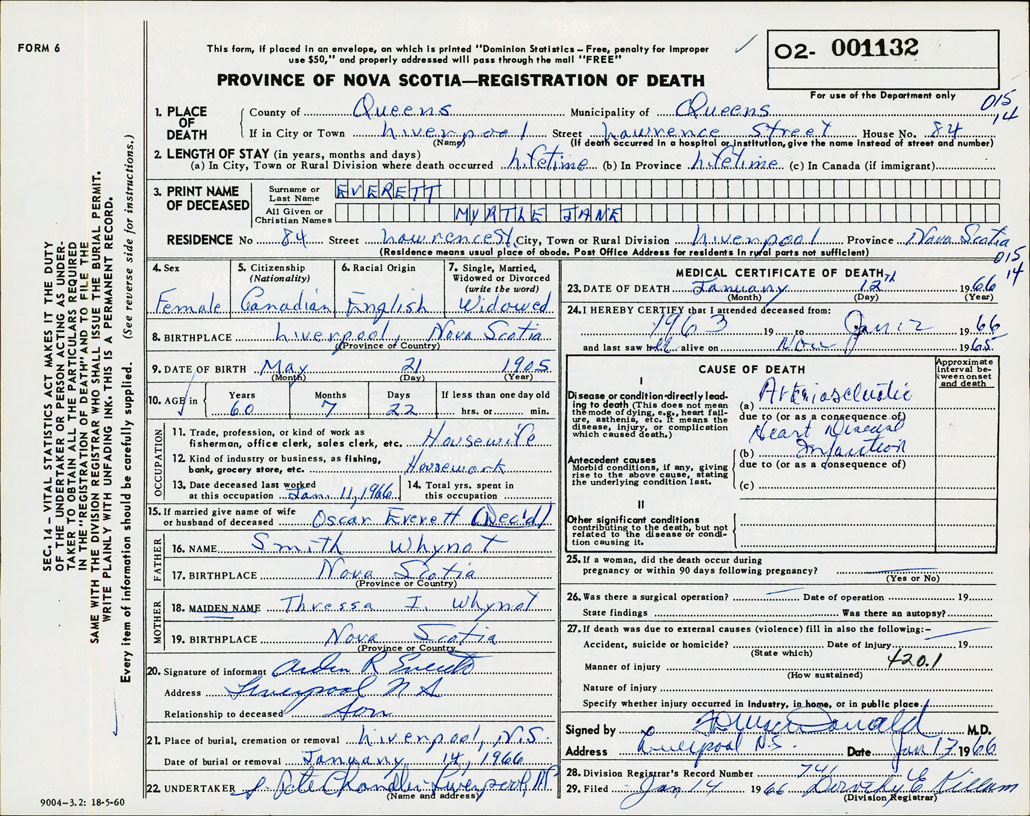 FORM 6
This form, if placed in an envelope, on which is printed "Dominion Statistics – Free, penalty for improper
use $50," and properly addressed will pass through the mail "FREE"
O2- 001132
PROVINCE OF NOVA SCOTIA—REGISTRATION OF DEATH
For use of the Department only
015
14
1. PLACE OF DEATH
County of Queens Municipality of Queens
If in City or Town Liverpool Street Lawrence Street House No. 84
(Name) (If death occurred in a hospital or institution, give the name instead of street and number)
2. LENGTH OF STAY (in years, months and days)
(a) In City, Town or Rural Division where death occurred Lifetime (b) In Province Lifetime (c) In Canada (if immigrant)
3. PRINT NAME OF DECEASED
Surname or Last Name EVERETT
All Given or Christian Names MYRTLE JANE
RESIDENCE No 84 Street Lawrence St. City, Town or Rural Division Liverpool Province Nova Scotia
(Residence means usual place of abode. Post Office Address for residents in rural parts not sufficient)
015
14
4. Sex
Female
5. Citizenship
(Nationality)
Canadian
6. Racial Origin
English
7. Single, Married,
Widowed or Divorced
(write the word)
Widowed
8. BIRTHPLACE Liverpool, Nova Scotia
(Province or Country)
9. DATE OF BIRTH May 21 1905
(Month) (Day) (Year)
10. AGE in Years Months Days If less than one day old
60 7 22 hrs. or min.
OCCUPATION
11. Trade, profession, or kind of work as
fisherman, office clerk, sales clerk, etc. Housewife
12. Kind of industry or business, as fishing,
bank, grocery store, etc. Housework
13. Date deceased last worked
at this occupation Jan. 11, 1966
14. Total yrs. spent in
this occupation
15. If married give name of wife
or husband of deceased Oscar Everett (Dec'd)
FATHER
16. NAME Smith Whynot
17. BIRTHPLACE Nova Scotia
(Province or Country)
MOTHER
18. MAIDEN NAME Thressa I. Whynot
19. BIRTHPLACE Nova Scotia
(Province or Country)
20. Signature of informant Arden R Everett
Address Liverpool N S
Relationship to deceased Son
21. Place of burial, cremation or removal Liverpool, N.S.
Date of burial or removal January 14, 1966
22. UNDERTAKER Pete Chandler Liverpool, N.S.
(Name and address)
MEDICAL CERTIFICATE OF DEATH
23. DATE OF DEATH January 12th 1966
(Month) (Day) (Year)
24. I HEREBY CERTIFY that I attended deceased from:
1963 19 to Jan 12 1966
and last saw her alive on Nov 1965
CAUSE OF DEATH
Approximate
interval be-
tween onset
and death
I
Disease or condition directly lead-
ing to death (This does not mean
the mode of dying, e.g., heart fail-
ure, asthenia, etc. It means the
disease, injury, or complication
which caused death.)
(a) Arteriosclerotic
due to (or as a consequence of)
Heart Disease
Antecedent causes
Morbid conditions, if any, giving
rise to the above cause, stating
the underlying condition last.
(b) Infarction
due to (or as a consequence of)
(c)
II
Other significant conditions
contributing to the death, but not
related to the disease or condi-
tion causing it.
25. If a woman, did the death occur during
pregnancy or within 90 days following pregnancy?
(Yes or No)
26. Was there a surgical operation? Date of operation 19
State findings Was there an autopsy?
27. If death was due to external causes (violence) fill in also the following:–
Accident, suicide or homicide? Date of injury 19
(State which) 420.1
Manner of injury
(How sustained)
Nature of injury
Specify whether injury occurred in industry, in home, or in public place
Signed by M.D.
Address Liverpool N.S. Date Jan 17 1966
28. Division Registrar's Record Number 741
29. Filed Jan 14 1966 Dorothy E Killam
(Division Registrar)
SEC. 14 – VITAL STATISTICS ACT MAKES IT THE DUTY
OF THE UNDERTAKER OR PERSON ACTING AS UNDER-
TAKER TO OBTAIN ALL THE PARTICULARS REQUIRED
IN THE "REGISTRATION OF DEATH" AND TO FILE THE
SAME WITH THE DIVISION REGISTRAR WHO SHALL ISSUE THE BURIAL PERMIT.
WRITE PLAINLY WITH UNFADING INK. THIS IS A PERMANENT RECORD.
Every item of information should be carefully supplied. (See reverse side for instructions.)
9004–3.2: 18-5-60